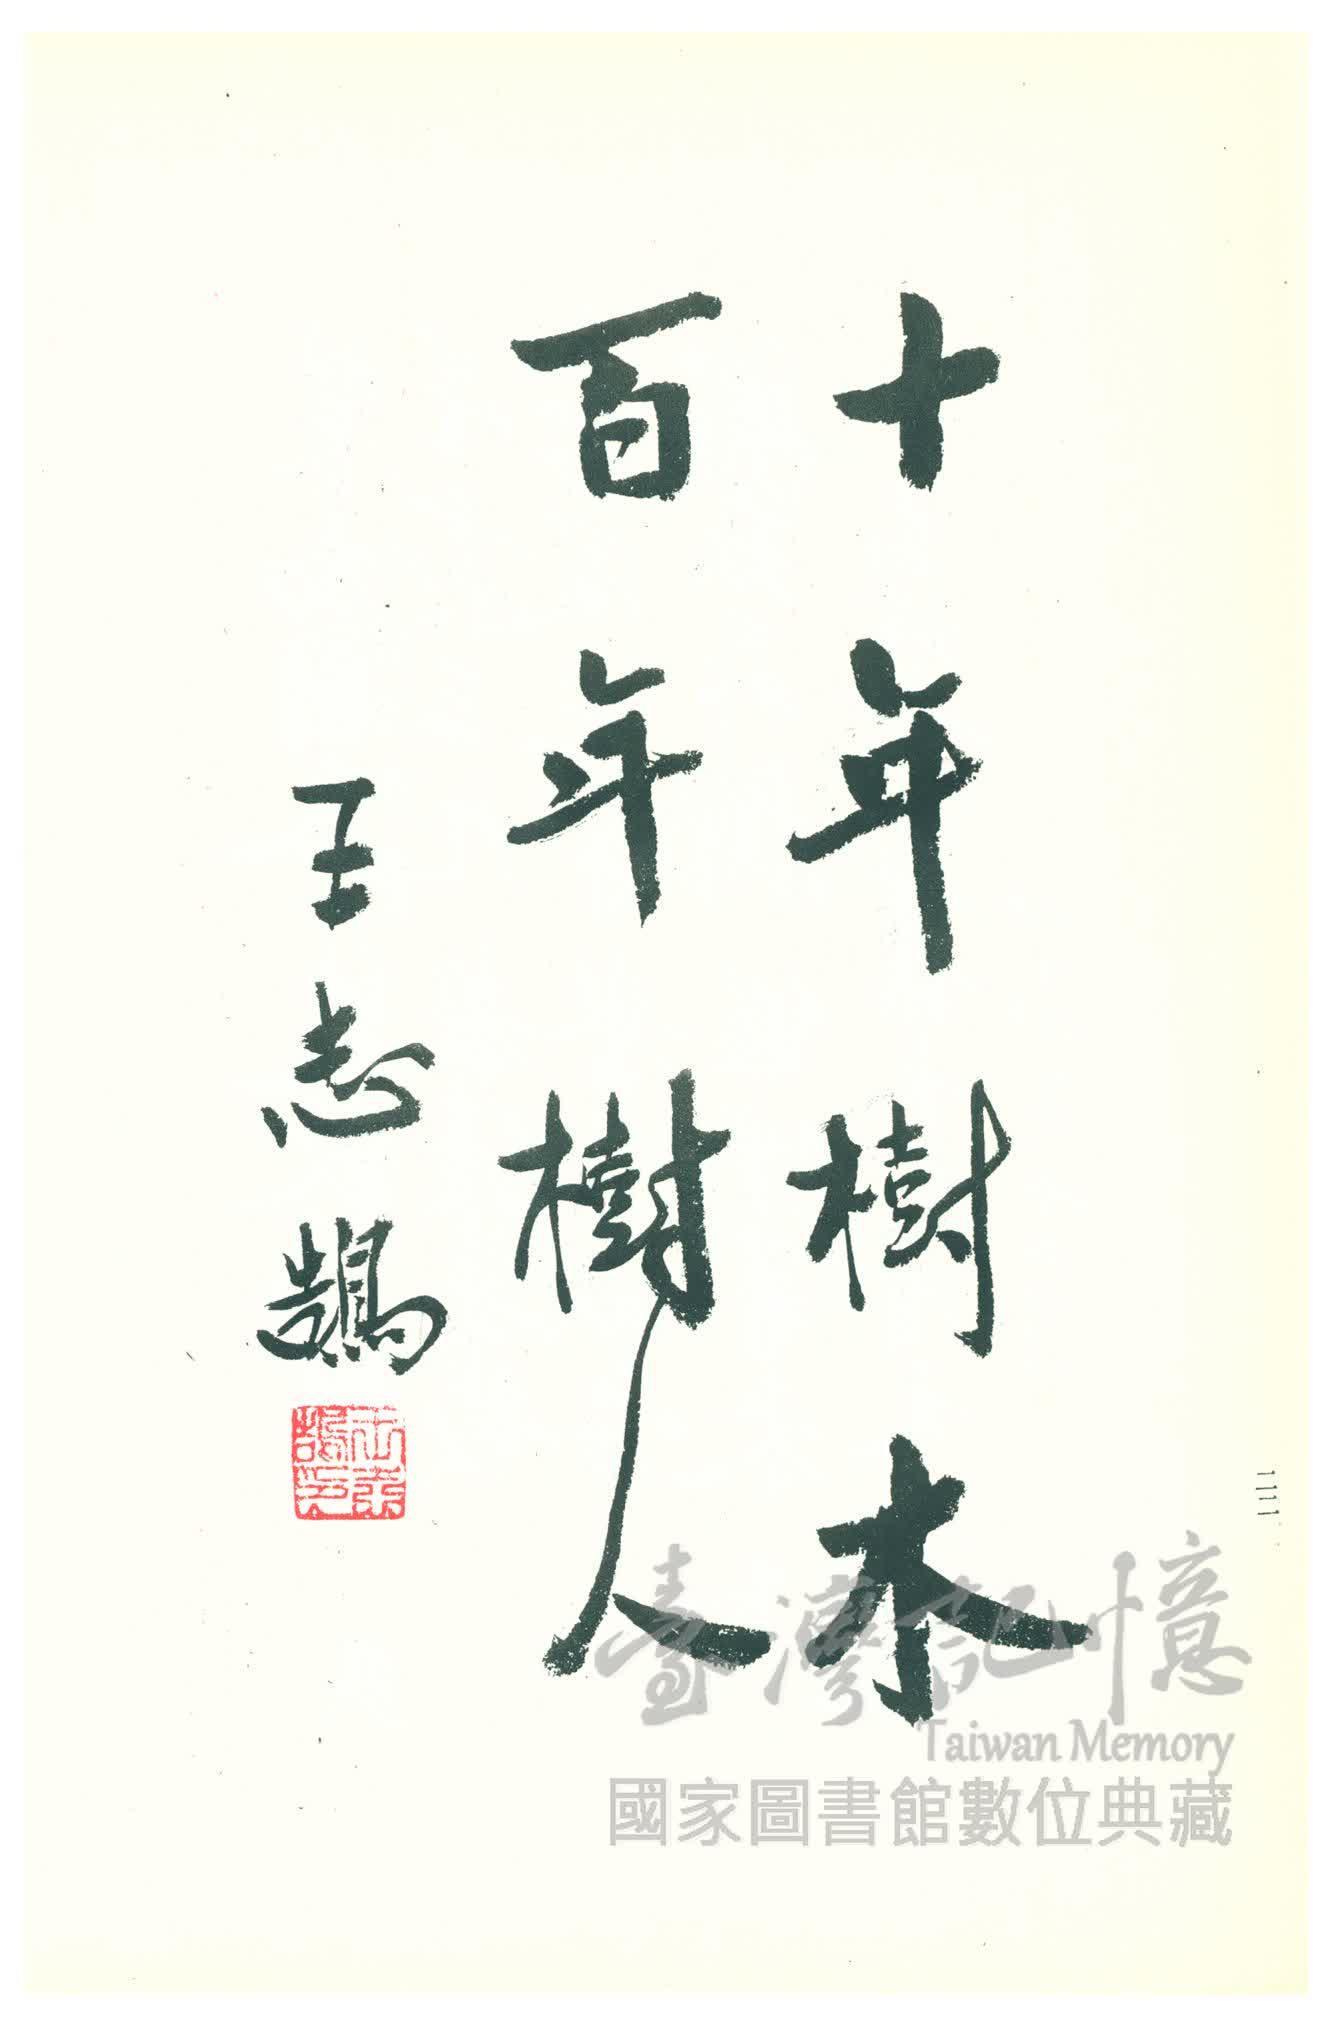 十年樹木
百年樹人
王志鵠
王志鵠印
臺灣記憶
Taiwan Memory
國家圖書館數位典藏